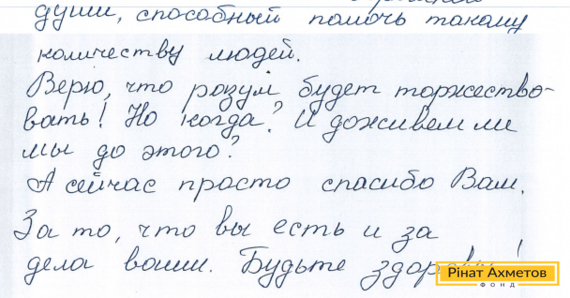 души, способный помочь такому
количеству людей.
Верю, что розум будет торжество-
вать! Но когда? И доживем ли
мы до этого?
А сейчас просто спасибо Вам.
За то, что вы есть и за
дела ваши. Будьте здоровы!
Рінат Ахметов
ФОНД